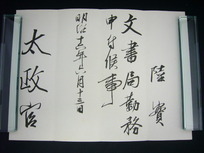 陸實
文書局勤務
申付候事
明治十六年六月十三日
太政官